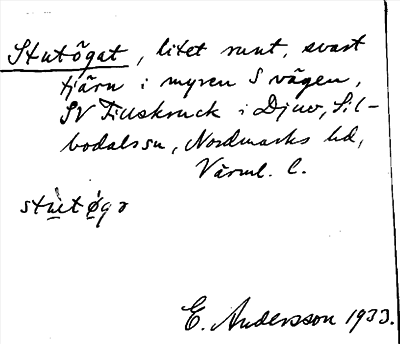 Stutögat, litet runt, svart
tjärn i myren S vägen,
SV Fillskruck i Djuv, Sil-
bodalssn, Nordmarks hd,
Värml. l.
E. Andersson 1933.